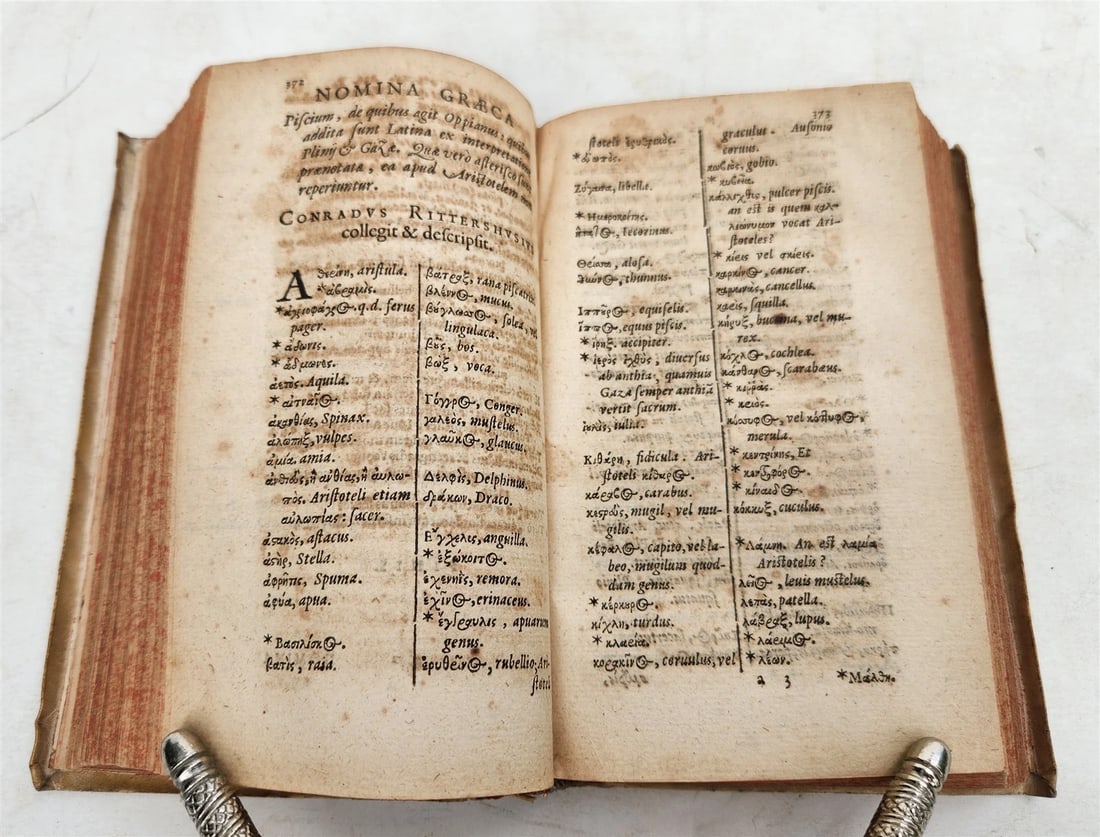 372
NOMINA GRÆCA
Piſcium, de quibus agit Oppianus: quibus
addita ſunt Latina ex interpretatione
Plinij & Gazæ. Quæ vero aſteriſco ſunt
prænotata, ea apud Ariſtotelem non
reperiuntur.
CONRADVS RITTERSHVSIVS
collegit & deſcripſit.
Ἀθερίνη, ariſtula.
*ἀβραμὶς.
*ἀγριοφάγος. q.d. ferus
pager.
* ἄδωνις.
* ἄδμωνες.
ἀετὸς. Aquila.
* αἰτναῖος.
ἀκανθίας, Spinax.
ἀλώπηξ, vulpes.
ἀμία. amia.
ἀνθίας, ἢ αὐλω-
πὸς. Ariſtoteli etiam
αὐλωπίας: ſacer.
ἀστακὸς, aſtacus.
ἀστὴρ, Stella.
ἀφρῆτις, Spuma.
ἀφύα, apua.
* Βασιλίσκος.
βατὶς, raia.
βάτραχος, rana piſcatrix.
βλέννος, mucus.
βούγλωσσος, ſolea, vel
lingulaca.
βοῦς, bos.
βῶξ, voca.
Γόγγρος, Conger.
γαλεὸς, muſtelus.
γλαῦκος, glaucus.
Δελφὶς, Delphinus.
δράκων, Draco.
Εγχελις, anguilla.
* ἐξώκοιτος.
ἐχενηῒς, remora.
ἐχῖνος, erinaceus.
* ἐγγραυλις, apuarum
genus.
ἐρυθρῖνος, rubellio, Ari-
ſtoteli
373
ſtoteli ἐρυθρινός.
Ζύγαινα, libella.
* Ημεροκοίτης.
ἥπατος, iecorinus.
Θρίσσα, aloſa.
θύννος, thunnus.
Ιππουρος, equiſelis.
ἵππος, equus piſcis.
* ἴρηξ. accipiter.
* ἱερὸς ἰχθὺς, diuerſus
ab anthia, quamuis
Gaza ſemper anthiā
vertit ſacrum.
ἰουλὶς, iulia.
Κιθάρη, fidicula. Ari-
ſtoteli κίθαρος.
κάραβος, carabus.
κεστρεὺς, mugil, vel mu-
gilis.
κέφαλος, capito, vel la-
beo, mugilum quod-
dam genus.
* κέρκουρος.
κίχλη, turdus.
* κλαρία.
κορακῖνος, coruulus, vel
graculus. Auſonio
coruus.
κωβιὸς, gobio.
* κυβεία.
κάλλιχθυς, pulcer piſcis.
an est is quem καλ-
λιώνυμον vocat Ari-
ſtoteles?
καρκίνος, cancer.
καρκινὰς, cancellus.
καρὶς, ſquilla.
κήρυξ, buccina, vel mu-
rex.
κόχλος, cochlea.
κάνθαρος, ſcarabæus.
* κιῤῥὰς.
* κριός.
κόσσυφος, vel κόττυφος,
merula.
* κεντρίνης, Et
* κεντροφόρος.
* κίναιδος.
κόκκυξ, cuculus.
*Λάμνη. An eſt λαμία
Ariſtotelis?
λεῖος, leuis muſtelus.
λεπὰς, patella.
λάβραξ, lupus.
* λάριμος.
* λέων.
a 3
*Μάλθη.